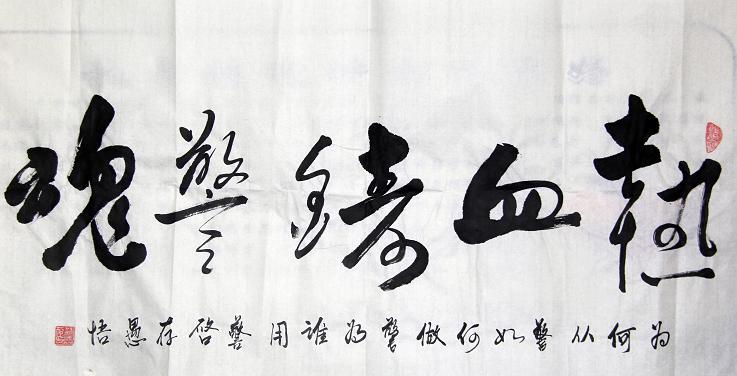 熱血鑄警魂
为何从警如何做警为誰用警啓存愚悟